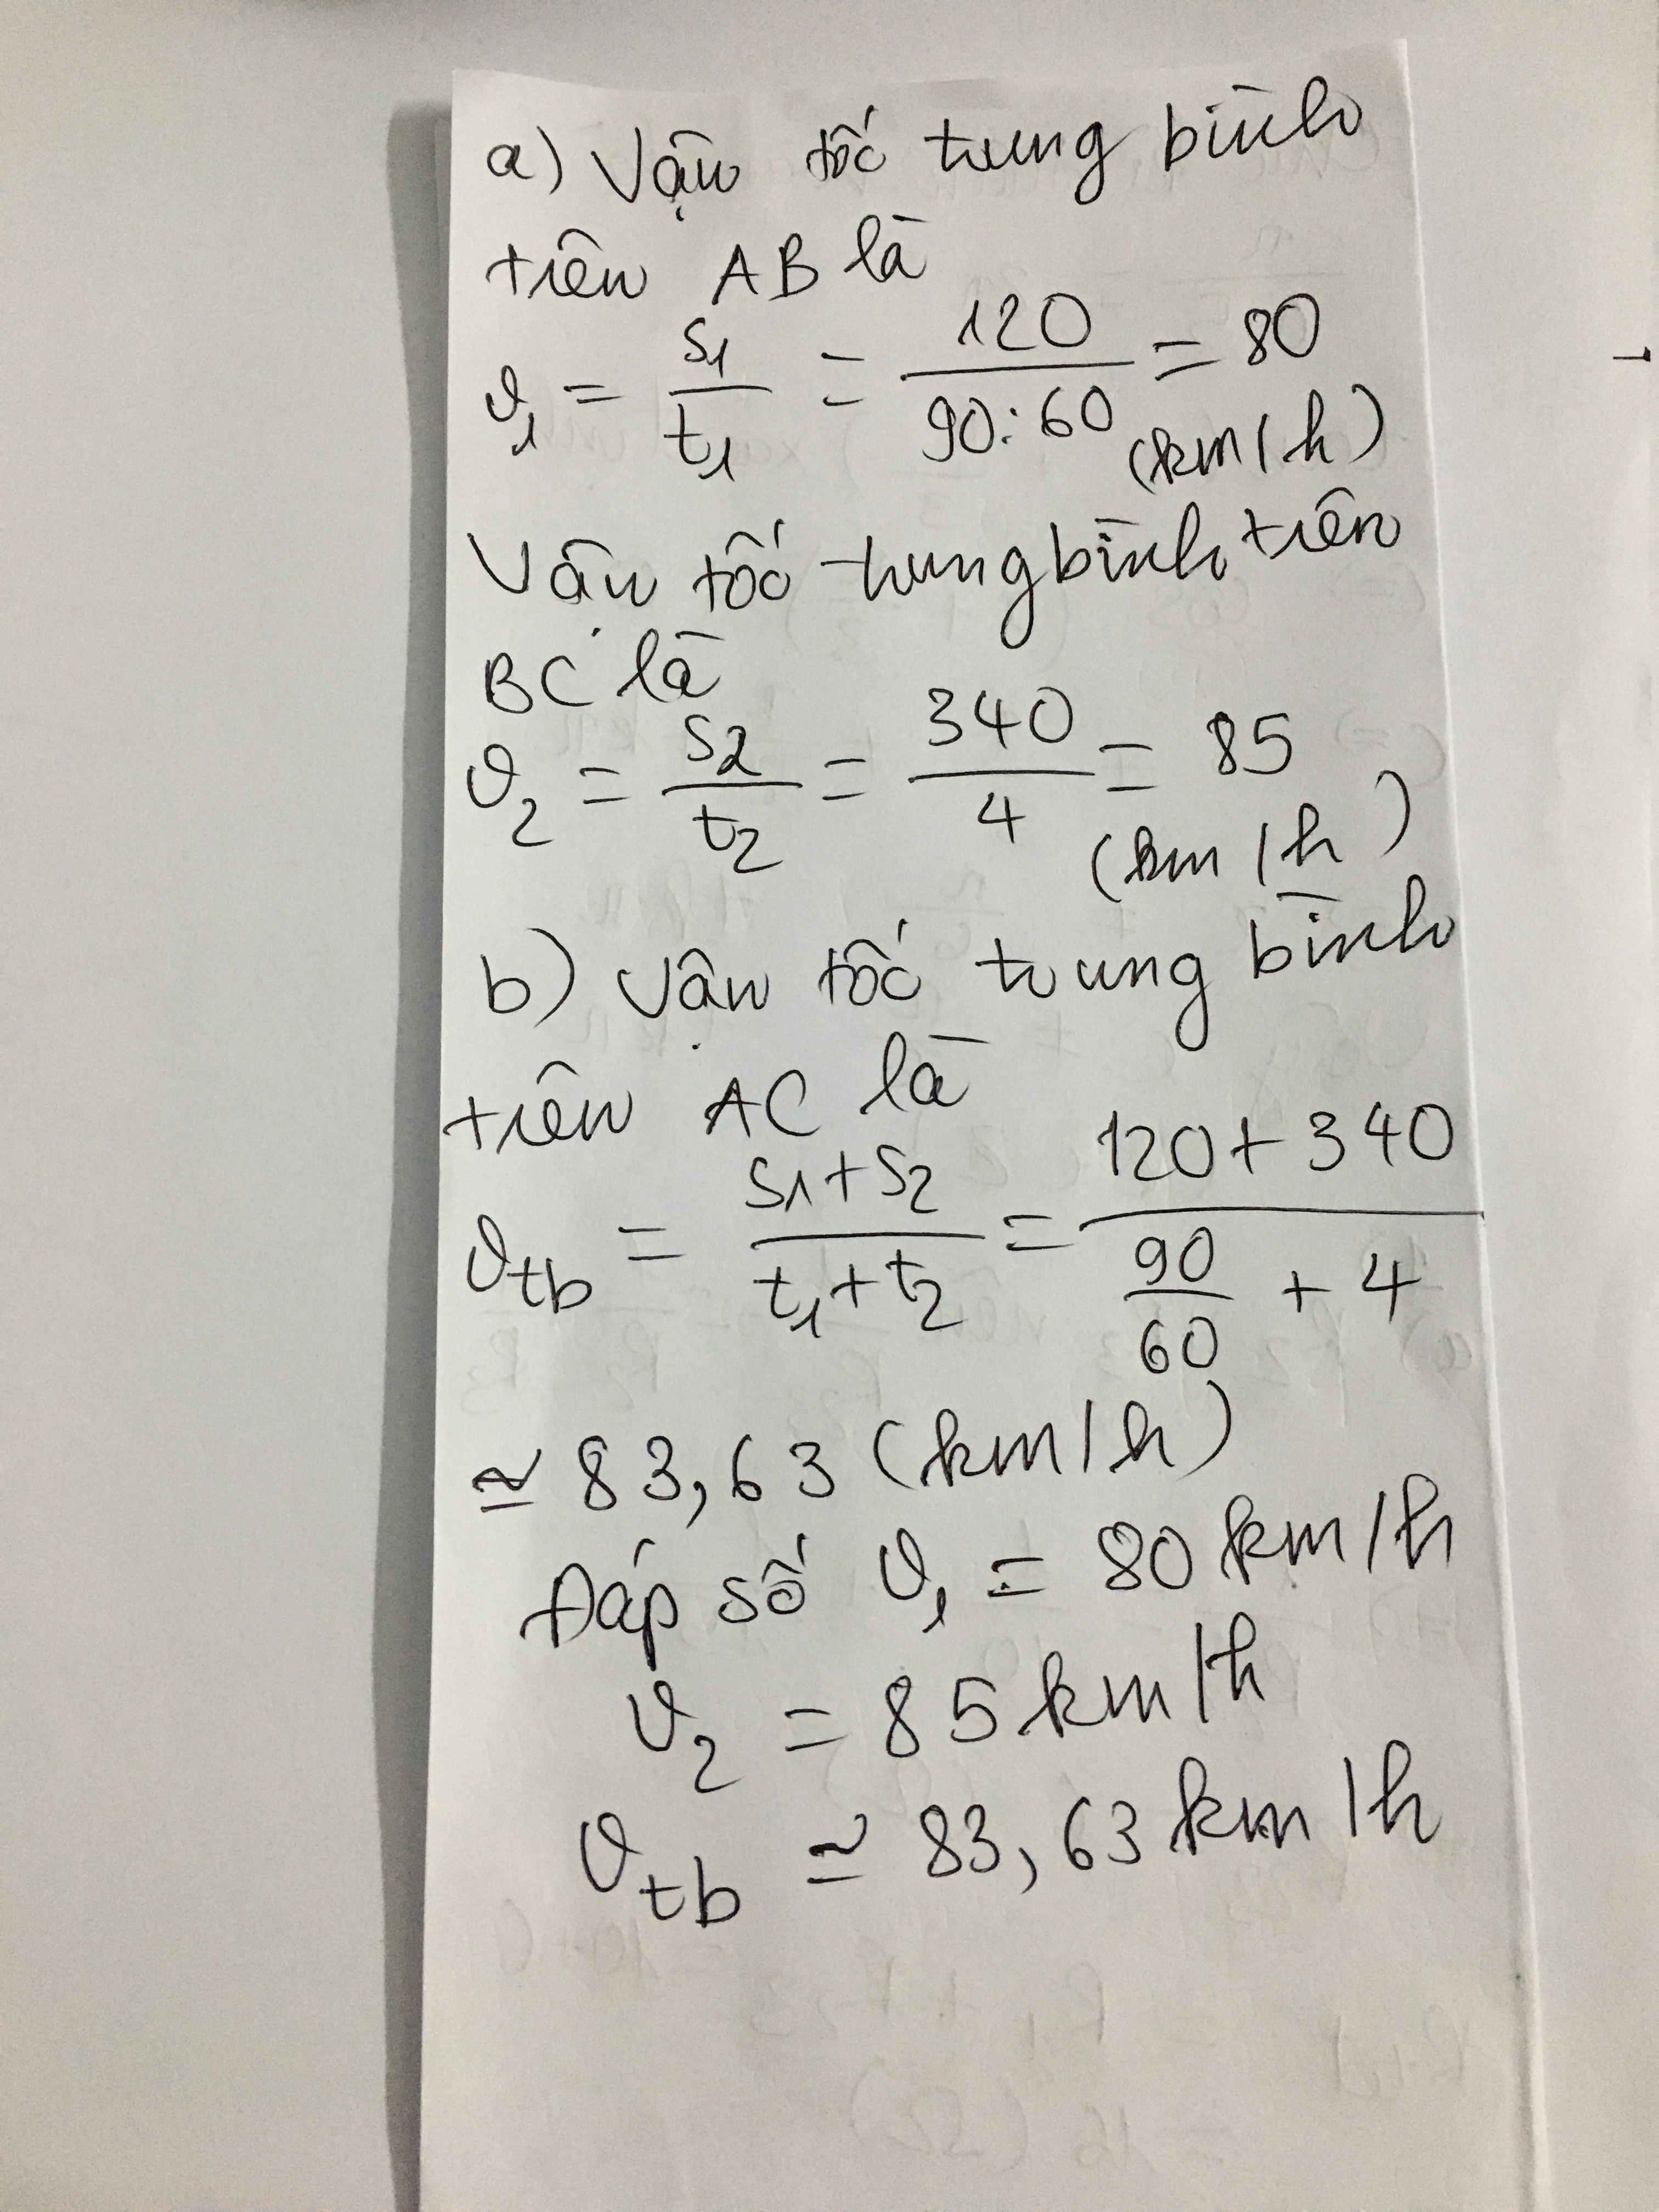 a) Vận tốc trung bình
trên AB là
v₁ = s₁/t₁ = 120/(90:60) = 80
(km/h)
Vận tốc trung bình trên
BC là
v₂ = s₂/t₂ = 340/4 = 85
(km/h)
b) Vận tốc trung bình
trên AC là
v_tb = (s₁+s₂)/(t₁+t₂) = (120+340)/(90/60 + 4)
≃ 83,63 (km/h)
Đáp số v₁ = 80 km/h
v₂ = 85 km/h
v_tb ≃ 83,63 km/h